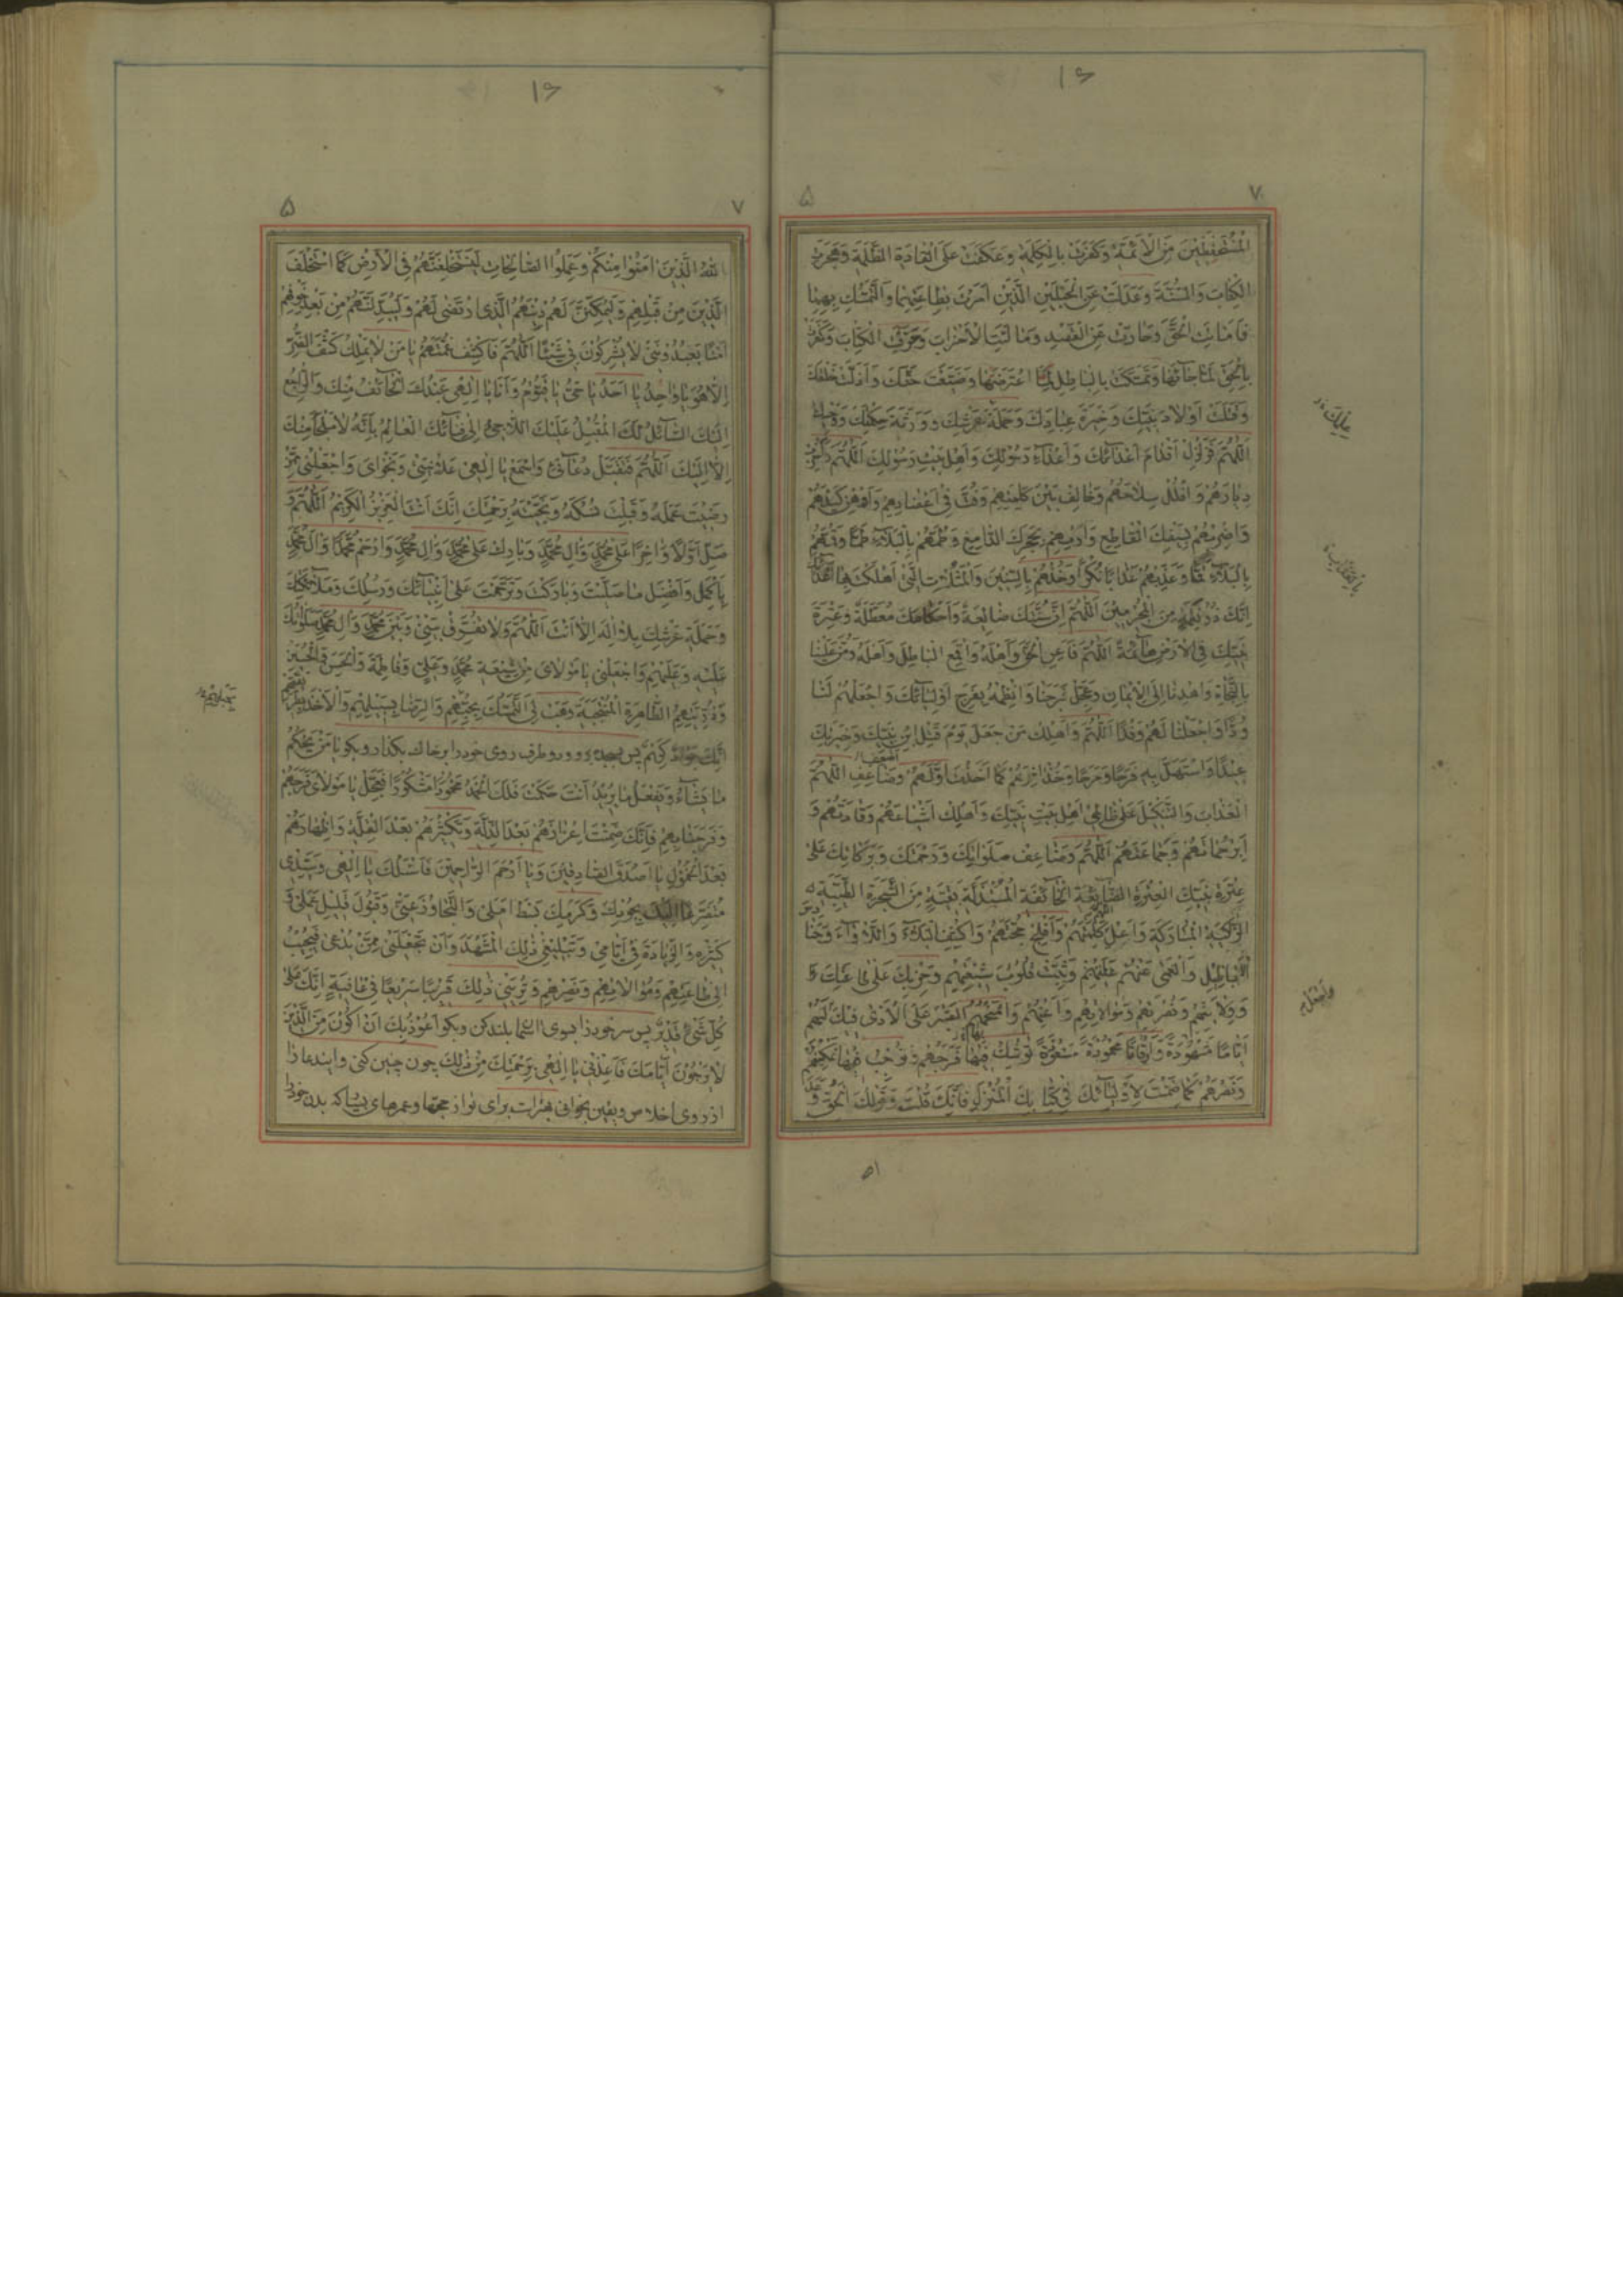 ۱۶
۷ ۵
الْمُسْتَحْفَظِينَ مِنَ الْأَئِمَّةِ وَكَفَرَتْ بِالْكَلِمَةِ وَعَكَفَتْ عَلَى الْقَادَةِ الظَّلَمَةِ وَهَجَرَتِ
الْكِتَابَ وَالسُّنَّةَ وَعَدَلَتْ عَنِ الْحَبْلَيْنِ الَّذَيْنِ أَمَرْتَ بِطَاعَتِهِمَا وَالتَّمَسُّكِ بِهِمَا
فَأَمَاتَتِ الْحَقَّ وَحَادَتْ عَنِ الْقَصْدِ وَمَالَئَتِ الْأَحْزَابَ وَحَرَّفَتِ الْكِتَابَ وَكَفَرَتْ
بِالْحَقِّ لَمَّا جَاءَهَا وَتَمَسَّكَتْ بِالْبَاطِلِ لَمَّا اعْتَرَضَهَا وَضَيَّعَتْ حَقَّكَ وَأَضَلَّتْ خَلْقَكَ
وَقَتَلَتْ أَوْلَادَ نَبِيِّكَ وَخِيَرَةَ عِبَادِكَ وَحَمَلَةَ عَرْشِكَ وَوَرَثَةَ حِكْمَتِكَ وَوَحْيِكَ
اللَّهُمَّ فَزَلْزِلْ أَقْدَامَ أَعْدَائِكَ وَأَعْدَاءِ رَسُولِكَ وَأَهْلِ بَيْتِ رَسُولِكَ اللَّهُمَّ وَأَخْرِبْ
دِيَارَهُمْ وَافْلُلْ سِلَاحَهُمْ وَخَالِفْ بَيْنَ كَلِمَتِهِمْ وَفُتَّ فِي أَعْضَادِهِمْ وَأَوْهِنْ كَيْدَهُمْ
وَاضْرِبْهُمْ بِسَيْفِكَ الْقَاطِعِ وَارْمِهِمْ بِحَجَرِكَ الدَّامِغِ وَطُمَّهُمْ بِالْبَلَاءِ طَمًّا وَقُمَّهُمْ
بِالْبَلَاءِ قَمًّا وَعَذِّبْهُمْ عَذَابًا نُكْرًا وَخُذْهُمْ بِالسِّنِينَ وَالْمَثُلَاتِ الَّتِي أَهْلَكْتَ بِهَا
إِنَّكَ ذُو نَقِمَةٍ مِنَ الْمُجْرِمِينَ اللَّهُمَّ إِنَّ سُنَّتَكَ ضَائِعَةٌ وَأَحْكَامَكَ مُعَطَّلَةٌ وَعِتْرَةَ
نَبِيِّكَ فِي الْأَرْضِ هَائِمَةٌ اللَّهُمَّ فَأَعِنِ الْحَقَّ وَأَهْلَهُ وَاقْمَعِ الْبَاطِلَ وَأَهْلَهُ وَمُنَّ عَلَيْنَا
بِالنَّجَاةِ وَاهْدِنَا إِلَى الْإِيمَانِ وَعَجِّلْ فَرَجَنَا وَانْظِمْهُ بِفَرَجِ أَوْلِيَائِكَ وَاجْعَلْهُمْ لَنَا
وُدًّا وَاجْعَلْنَا لَهُمْ وَفْدًا اللَّهُمَّ وَأَهْلِكْ مَنْ جَعَلَ يَوْمَ قَتْلِ ابْنِ نَبِيِّكَ وَخِيَرَتِكَ
عِيدًا وَاسْتَهَلَّ بِهِ فَرَحًا وَمَرَحًا وَخُذْ آخِرَهُمْ كَمَا أَخَذْتَ أَوَّلَهُمْ وَضَاعِفِ اللَّهُمَّ
الْعَذَابَ وَالتَّنْكِيلَ عَلَى ظَالِمِي أَهْلِ بَيْتِ نَبِيِّكَ وَأَهْلِكْ أَشْيَاعَهُمْ وَقَادَتَهُمْ وَ
أَبِرْ حُمَاتَهُمْ وَجَمَاعَتَهُمْ اللَّهُمَّ وَضَاعِفْ صَلَوَاتِكَ وَرَحْمَتَكَ وَبَرَكَاتِكَ عَلَى
عِتْرَةِ نَبِيِّكَ الْعِتْرَةِ الضَّائِعَةِ الْخَائِفَةِ الْمُسْتَذَلَّةِ بَقِيَّةٍ مِنَ الشَّجَرَةِ الطَّيِّبَةِ
الزَّاكِيَةِ الْمُبَارَكَةِ وَأَعْلِ اللَّهُمَّ كَلِمَتَهُمْ وَأَفْلِجْ حُجَّتَهُمْ وَاكْشِفِ الْبَلَاءَ وَاللَّأْوَاءَ وَحَنَادِسَ
الْأَبَاطِيلِ وَالْعَمَى عَنْهُمْ وَثَبِّتْ قُلُوبَ شِيعَتِهِمْ وَحِزْبِكَ عَلَى طَاعَتِكَ وَ
وَوِلَايَتِهِمْ وَنُصْرَتِهِمْ وَمُوَالَاتِهِمْ وَأَعِنْهُمْ وَامْنَحْهُمُ الصَّبْرَ عَلَى الْأَذَى فِيكَ وَاجْعَلْ لَهُمْ
أَيَّامًا مَشْهُودَةً وَأَوْقَاتًا مَحْمُودَةً مَسْعُودَةً تُوشِكُ فِيهَا فَرَجَهُمْ وَتُوجِبُ فِيهَا تَمْكِينَهُمْ
وَنَصْرَهُمْ كَمَا ضَمِنْتَ لِأَوْلِيَائِكَ فِي كِتَابِكَ الْمُنْزَلِ فَإِنَّكَ قُلْتَ وَقَوْلُكَ الْحَقُّ وَعَدَ
۱۶
۷ ۵
اللَّهُ الَّذِينَ آمَنُوا مِنْكُمْ وَعَمِلُوا الصَّالِحَاتِ لَيَسْتَخْلِفَنَّهُمْ فِي الْأَرْضِ كَمَا اسْتَخْلَفَ
الَّذِينَ مِنْ قَبْلِهِمْ وَلَيُمَكِّنَنَّ لَهُمْ دِينَهُمُ الَّذِي ارْتَضَى لَهُمْ وَلَيُبَدِّلَنَّهُمْ مِنْ بَعْدِ خَوْفِهِمْ
أَمْنًا يَعْبُدُونَنِي لَا يُشْرِكُونَ بِي شَيْئًا اللَّهُمَّ فَاكْشِفْ غُمَّتَهُمْ يَا مَنْ لَا يَمْلِكُ كَشْفَ الضُّرِّ
إِلَّا هُوَ يَا وَاحِدُ يَا أَحَدُ يَا حَيُّ يَا قَيُّومُ وَأَنَا يَا إِلَهِي عَبْدُكَ الْخَائِفُ مِنْكَ وَالرَّاجِعُ
إِلَيْكَ السَّائِلُ لَكَ الْمُقْبِلُ عَلَيْكَ اللَّاجِئُ إِلَى فِنَائِكَ الْعَالِمُ بِأَنَّهُ لَا مَلْجَأَ مِنْكَ
إِلَّا إِلَيْكَ اللَّهُمَّ فَتَقَبَّلْ دُعَائِي وَاسْمَعْ يَا إِلَهِي عَلَانِيَتِي وَنَجْوَايَ وَاجْعَلْنِي مِمَّنْ
رَضِيتَ عَمَلَهُ وَقَبِلْتَ نُسُكَهُ وَنَجَّيْتَهُ بِرَحْمَتِكَ إِنَّكَ أَنْتَ الْعَزِيزُ الْكَرِيمُ اللَّهُمَّ وَ
صَلِّ أَوَّلًا وَآخِرًا عَلَى مُحَمَّدٍ وَآلِ مُحَمَّدٍ وَبَارِكْ عَلَى مُحَمَّدٍ وَآلِ مُحَمَّدٍ وَارْحَمْ مُحَمَّدًا وَآلَ مُحَمَّدٍ
بِأَكْمَلِ وَأَفْضَلِ مَا صَلَّيْتَ وَبَارَكْتَ وَتَرَحَّمْتَ عَلَى أَنْبِيَائِكَ وَرُسُلِكَ وَمَلَائِكَتِكَ
وَحَمَلَةِ عَرْشِكَ بِلَا إِلَهَ إِلَّا أَنْتَ اللَّهُمَّ وَلَا تُفَرِّقْ بَيْنِي وَبَيْنَ مُحَمَّدٍ وَآلِ مُحَمَّدٍ صَلَوَاتُكَ
عَلَيْهِ وَعَلَيْهِمْ وَاجْعَلْنِي يَا مَوْلَايَ مِنْ شِيعَةِ مُحَمَّدٍ وَعَلِيٍّ وَفَاطِمَةَ وَالْحَسَنِ وَالْحُسَيْنِ
وَذُرِّيَّتِهِمُ الطَّاهِرَةِ الْمُنْتَجَبَةِ وَهَبْ لِيَ التَّمَسُّكَ بِحَبْلِهِمْ وَالرِّضَا بِسَبِيلِهِمْ وَالْأَخْذَ
إِنَّكَ جَوَادٌ كَرِيمٌ پس بسجده رو و دو طرف روی خود را بر خاک بگذار و بگو يَا مَنْ يَحْكُمُ
مَا يَشَاءُ وَيَفْعَلُ مَا يُرِيدُ أَنْتَ حَكَمْتَ فَلَكَ الْحَمْدُ مَحْمُودًا مَشْكُورًا فَعَجِّلْ يَا مَوْلَايَ فَرَجَهُمْ
وَفَرَجَنَا بِهِمْ فَإِنَّكَ ضَمِنْتَ إِعْزَازَهُمْ بَعْدَ الذِّلَّةِ وَتَكْثِيرَهُمْ بَعْدَ الْقِلَّةِ وَإِظْهَارَهُمْ
بَعْدَ الْخُمُولِ يَا أَصْدَقَ الصَّادِقِينَ وَيَا أَرْحَمَ الرَّاحِمِينَ فَأَسْأَلُكَ يَا إِلَهِي وَسَيِّدِي
مُتَضَرِّعًا إِلَيْكَ بِجُودِكَ وَكَرَمِكَ بَسْطَ أَمَلِي وَالتَّجَاوُزَ عَنِّي وَقَبُولَ قَلِيلِ عَمَلِي وَ
كَثِيرِهِ وَالزِّيَادَةَ فِي أَيَّامِي وَتَبْلِيغِي ذَلِكَ الْمَشْهَدَ وَأَنْ تَجْعَلَنِي مِمَّنْ يُدْعَى فَيُجِيبُ
إِلَى طَاعَتِهِمْ وَمُوَالَاتِهِمْ وَنَصْرِهِمْ وَتُرِيَنِي ذَلِكَ قَرِيبًا سَرِيعًا فِي عَافِيَةٍ إِنَّكَ عَلَى
كُلِّ شَيْءٍ قَدِيرٌ پس سر خود را بسوی اسما بلند کن و بگو أَعُوذُ بِكَ أَنْ أَكُونَ مِنَ الَّذِينَ
لَا يَرْجُونَ أَيَّامَكَ فَأَعِذْنِي يَا إِلَهِي بِرَحْمَتِكَ مِنْ ذَلِكَ چون چنین کنی و ایندعا را
از روی اخلاص و یقین بخوانی بهتر است برای تو از حجها و عمرهای بسیار که بدن خود را